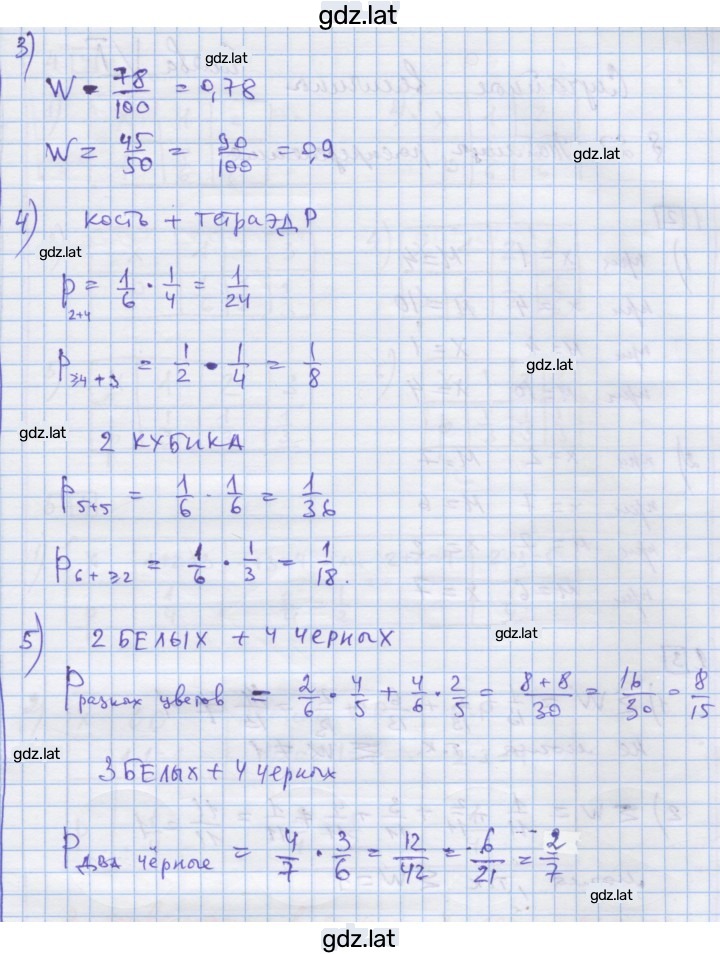 gdz.lat
3)
gdz.lat
W = 78/100 = 0,78
W = 45/50 = 90/100 = 0,9
gdz.lat
4) кость + тетраэдр
gdz.lat
P 2+4 = 1/6 · 1/4 = 1/24
P ≥4+3 = 1/2 · 1/4 = 1/8
gdz.lat
gdz.lat
2 кубика
P 5+5 = 1/6 · 1/6 = 1/36
P 6+≥2 = 1/6 · 1/3 = 1/18.
5) 2 белых + 4 черных
gdz.lat
P разных цветов = 2/6 · 4/5 + 4/6 · 2/5 = 8+8/30 = 16/30 = 8/15
gdz.lat
3 белых + 4 черных
P два чёрные = 4/7 · 3/6 = 12/42 = 6/21 = 2/7
gdz.lat
gdz.lat